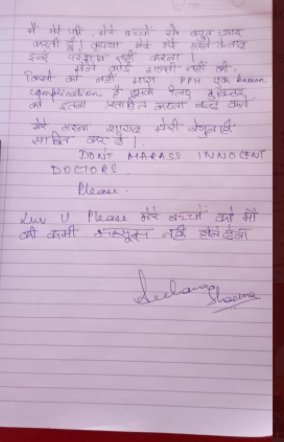 मैं मेरे पति, मेरे बच्चों से बहुत प्यार
करती हूँ। कृपया मेरे मरने के बाद
इन्हें परेशान नहीं करना।
मैंने कोई गलती नहीं की,
किसी को नहीं मारा PPH एक known
complication है, इसके लिए डॉक्टर
को इतना प्रताड़ित करना बंद करो।
मेरा मरना शायद मेरी बेगुनाही
साबित कर दे।
DON'T HARASS INNOCENT
DOCTORS.
Please.
Luv U Please मेरे बच्चों को माँ
की कमी महसूस नहीं होने देना